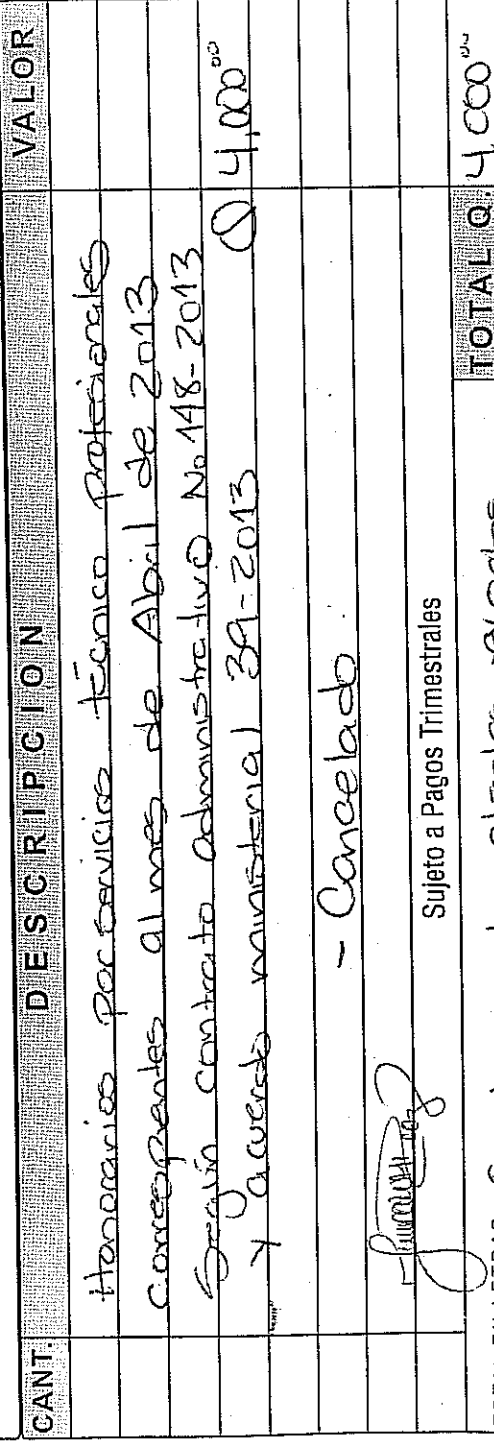 CANT. DESCRIPCION VALOR
Honorarios por servicios técnico profesionales
Correspondientes al mes de Abril de 2013
Según contrato administrativo No 148-2013
y acuerdo ministerial 39-2013 Q 4,000.00
- Cancelado.
Sujeto a Pagos Trimestrales
TOTAL Q. 4,000.00